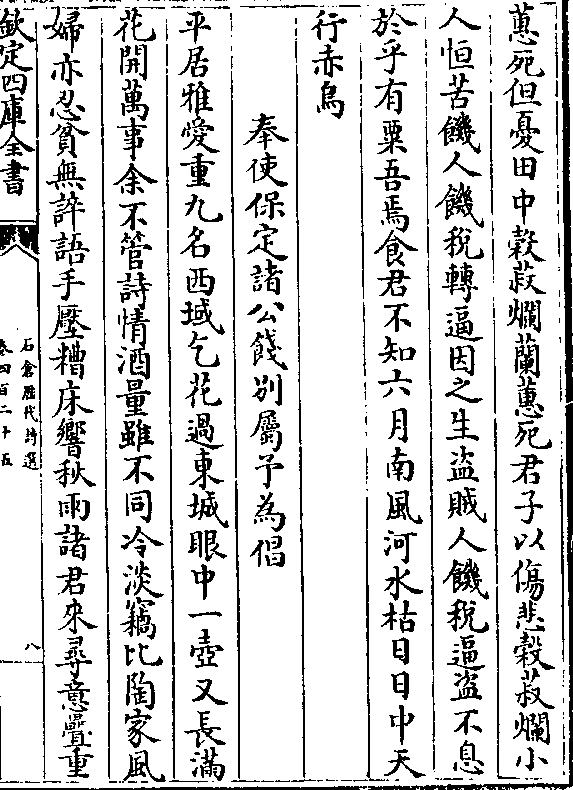 蕙死但憂田中榖菽爛蘭蕙死君子以傷悲榖菽爛小
人恒苦饑人饑稅轉逼因之生盜賊人饑稅逼盜不息
於乎有粟吾焉食君不知六月南風河水枯日日中天
行赤烏
奉使保定諸公餞别屬予為倡
平居雅愛重九名西域乞花過東城眼中一壺又長滿
花開萬事余不管詩情酒量雖不同冷淡竊比陶家風
婦亦忍貧無誶語手壓糟床響秋雨諸君來尋意疊重
欽定四庫全書
石倉歷代詩選
卷四百二十五
八